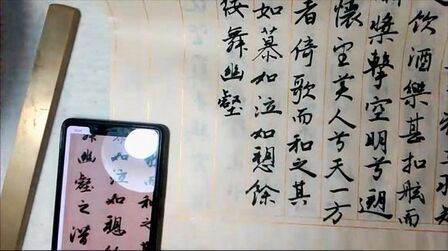 飲酒樂甚扣舷而
槳擊空明兮遡
懷望美人兮天一方
者倚歌而和之其
如慕如泣如愬餘
縷舞幽壑
而和之其
如泣如愬餘
舞幽壑之潛